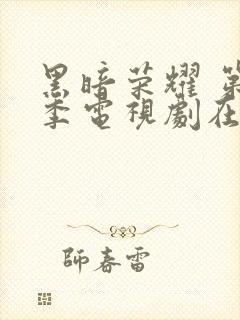 黑暗荣耀 第
季电视劇在
師春雷